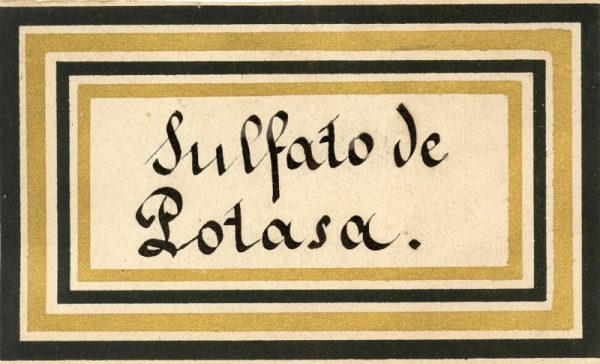 Sulfato de
Potasa.